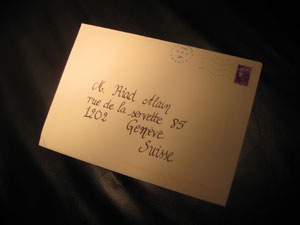 M. Riad Alain
rue de la servette 85
1202 Genève
Suisse